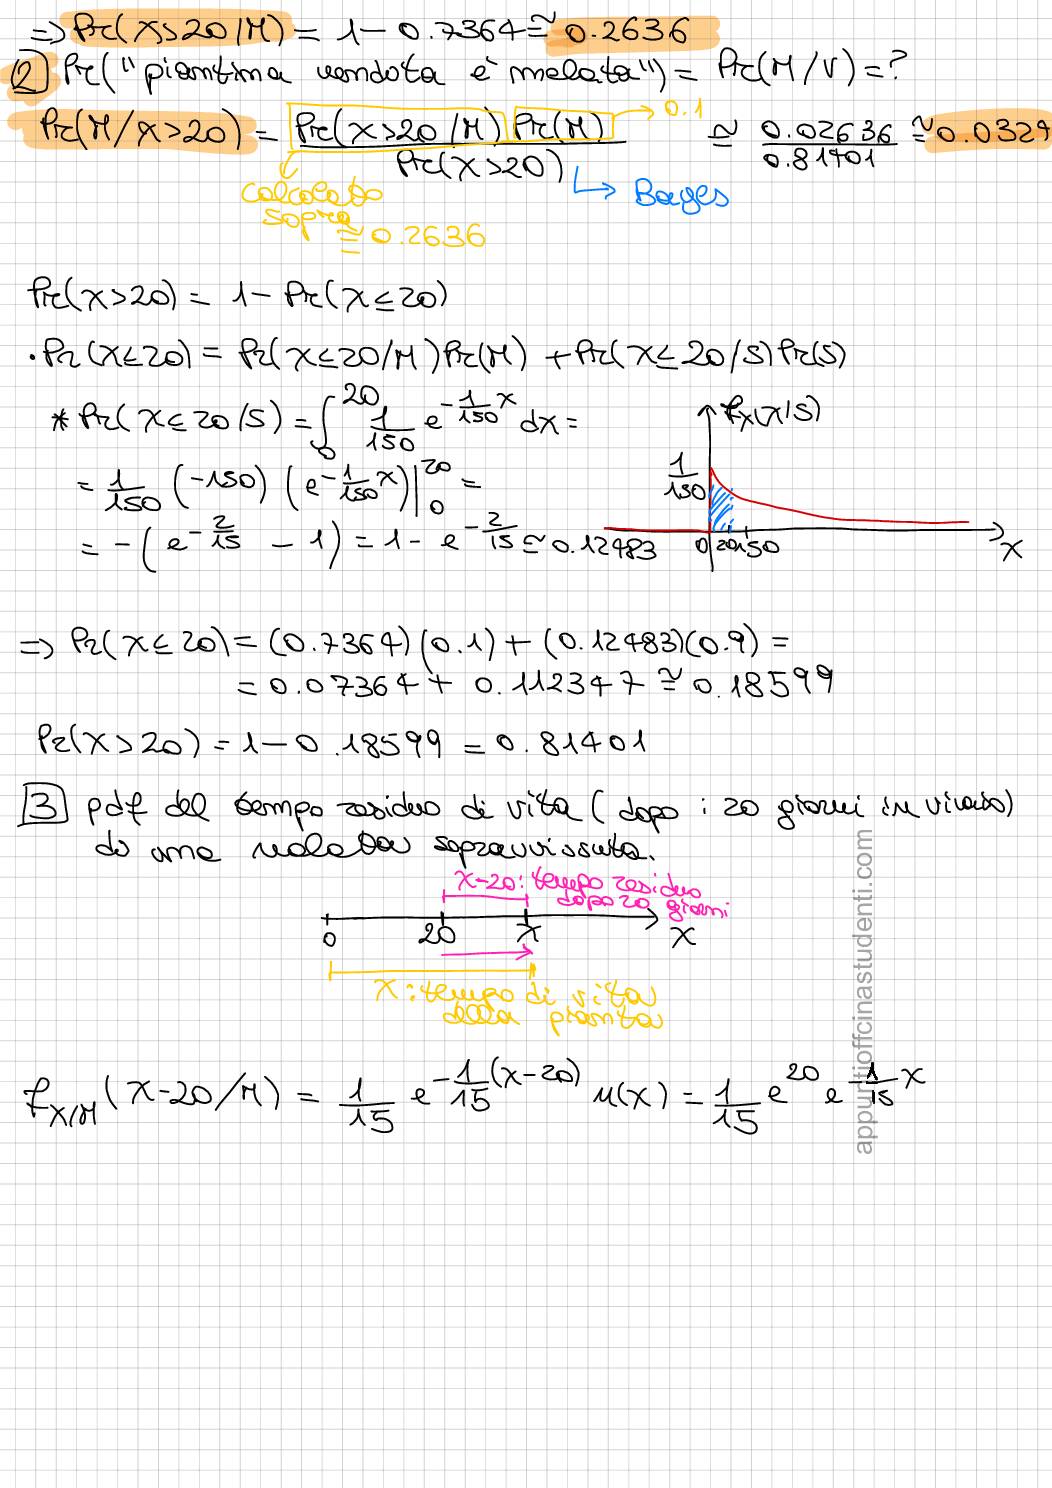 => Pr(X>20/M) = 1 - 0.7364 ≅ 0.2636
2 Pr("piantina venduta è malata") = Pr(M/V) = ?
Pr(M/X>20) = Pr(X>20/M) Pr(M) / Pr(X>20) ≅ 0.02636 / 0.81401 ≅ 0.0324
→ 0.1
→ Bayes
calcolato
sopra
≅ 0.2636
Pr(X>20) = 1 - Pr(X≤20)
· Pr(X≤20) = Pr(X≤20/M) Pr(M) + Pr(X≤20/S) Pr(S)
* Pr(X≤20/S) = ∫₀²⁰ 1/150 e^(-1/150 x) dx =
= 1/150 (-150) (e^(-1/150 x))|₀²⁰ =
= -(e^(-2/15) - 1) = 1 - e^(-2/15) ≅ 0.12483
fx(X/S)
1/150
0 20 150 X
=> Pr(X≤20) = (0.7364)(0.1) + (0.12483)(0.9) =
= 0.07364 + 0.112347 ≅ 0.18599
Pr(X>20) = 1 - 0.18599 = 0.81401
3 pdf del tempo residuo di vita (dopo i 20 giorni in vivaio)
di una malata sopravvissuta.
X-20: tempo residuo
dopo 20 giorni
0 20 X X
X: tempo di vita
della pianta
f_X/M (X-20/M) = 1/15 e^(-1/15 (X-20)) u(X) = 1/15 e^20 e^(-1/15 X)
appuntioffcinastudenti.com